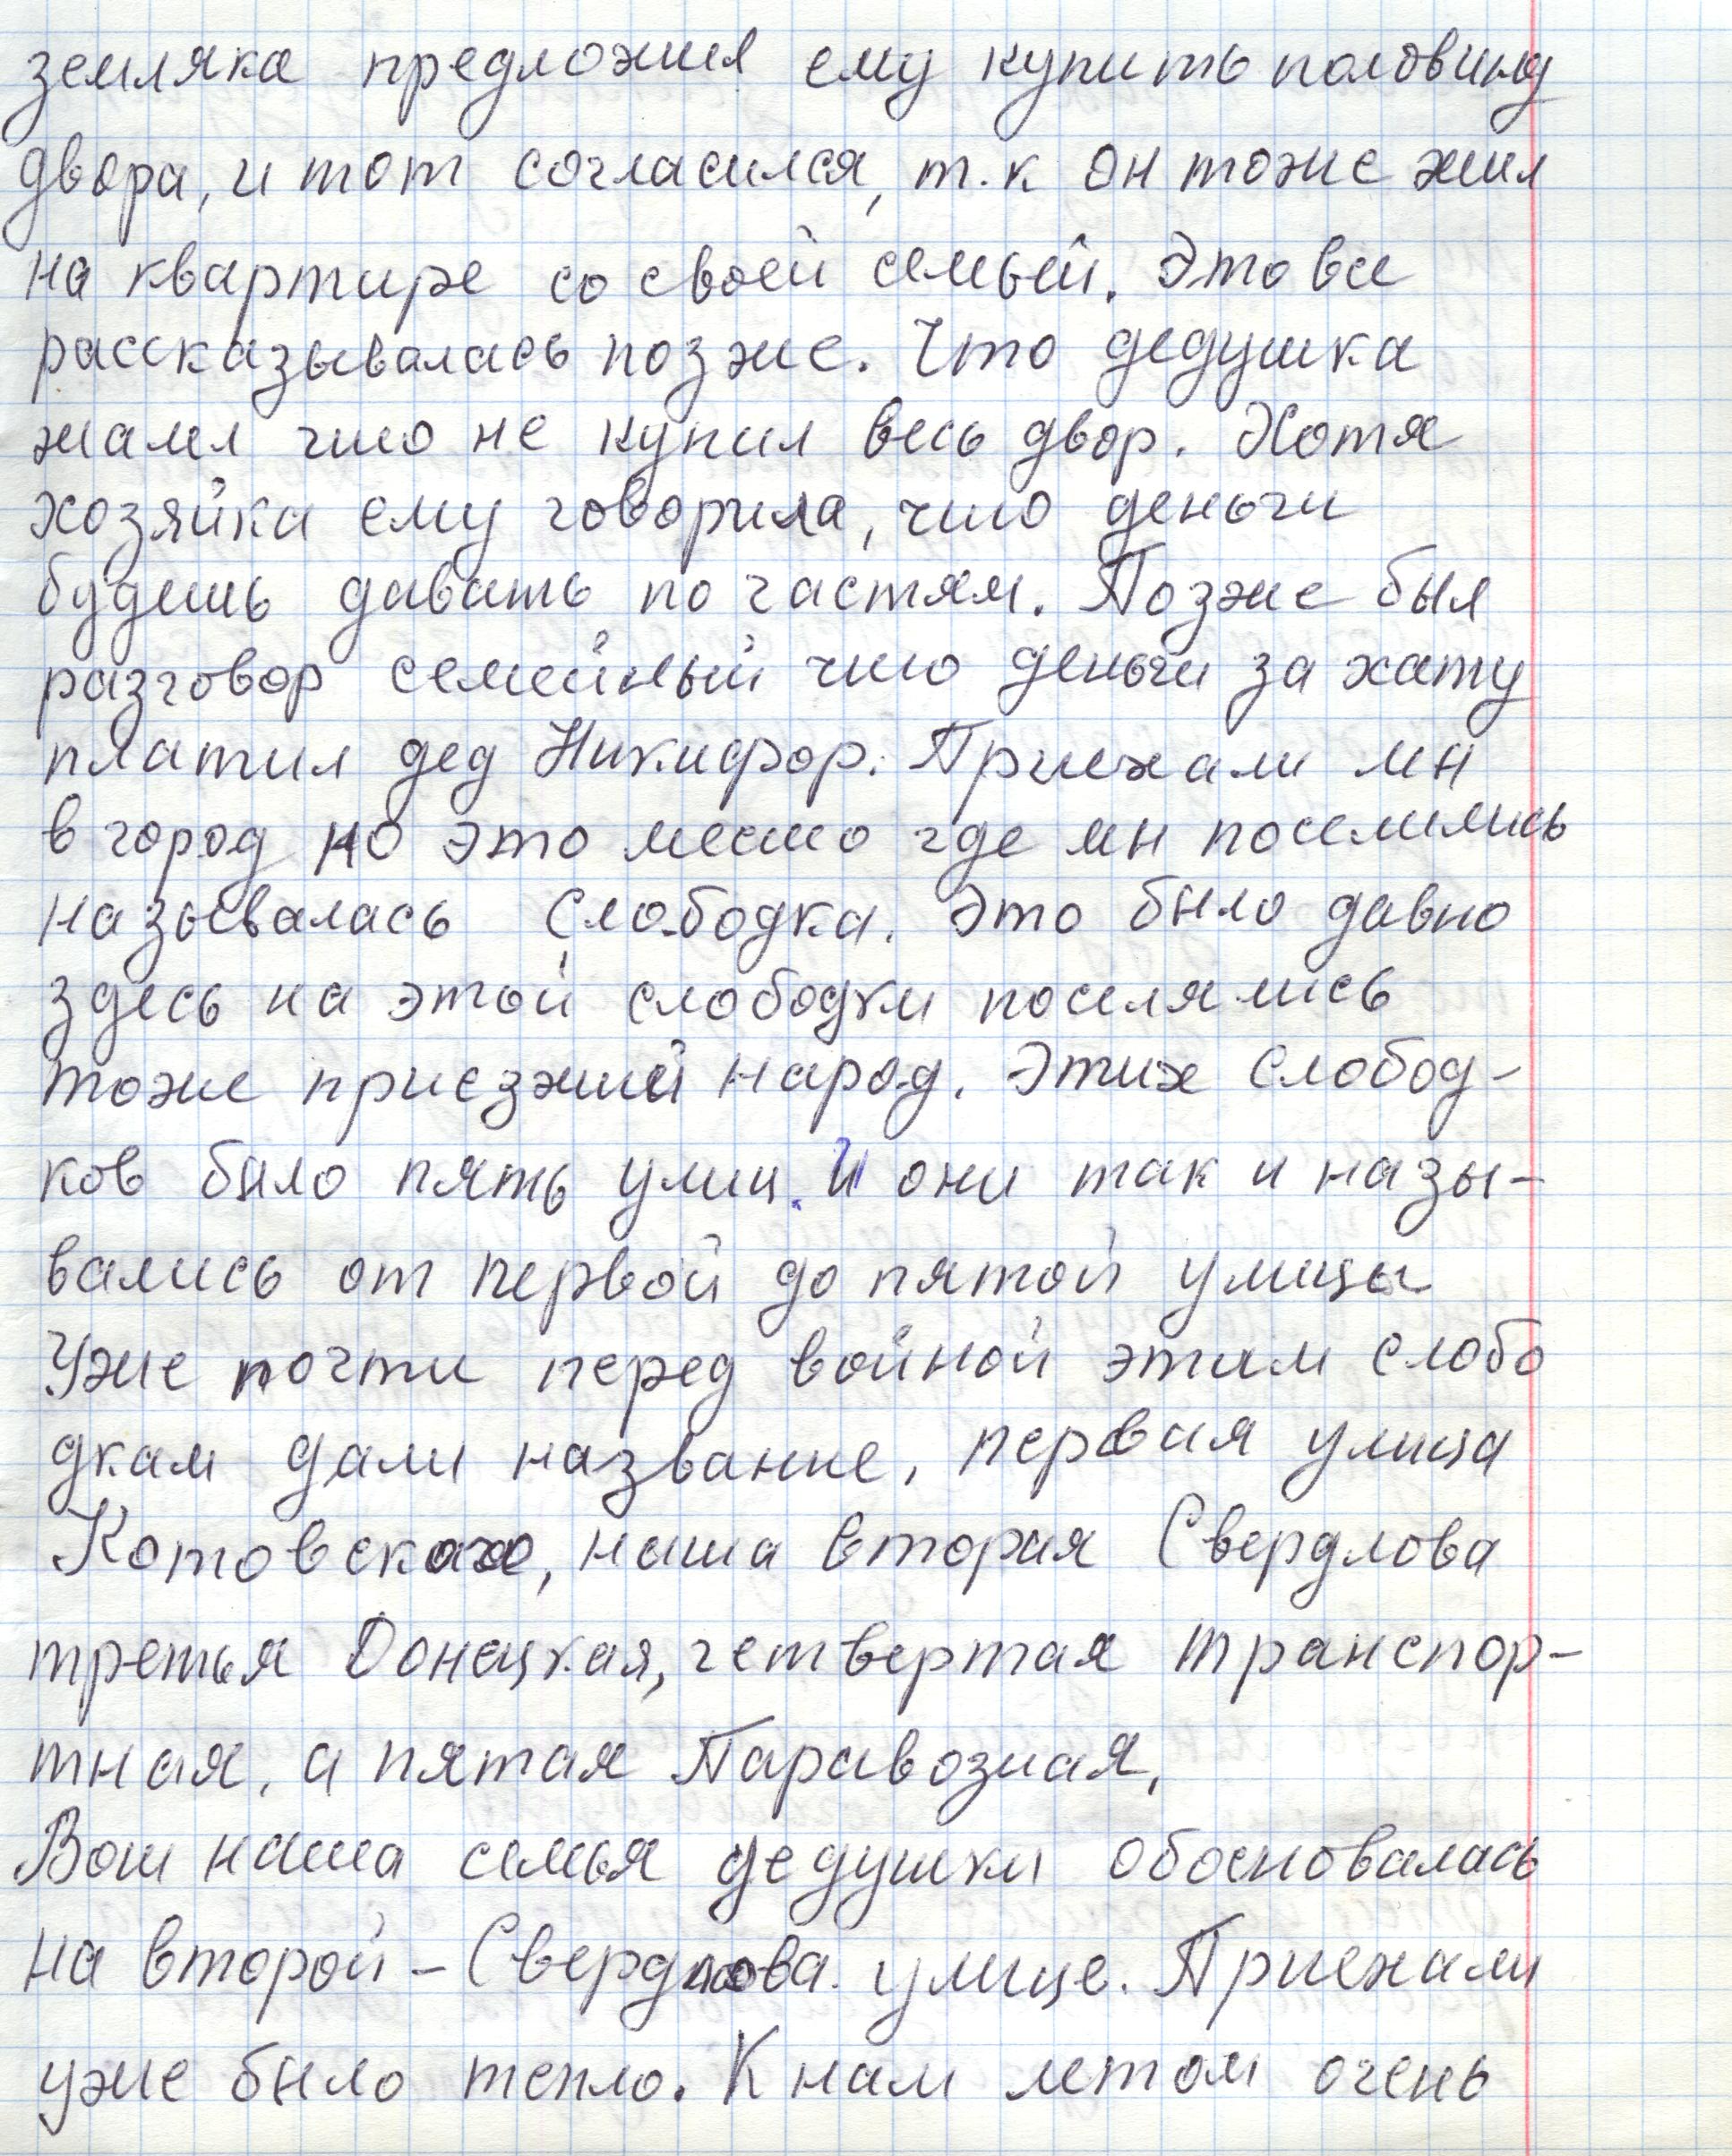 земляка предложил ему купить половину
двора, и тот согласился, т.к он тоже жил
на квартире со своей семьей. Это все
рассказывалась позже. Что дедушка
жалел что не купил весь двор. Хотя
хозяйка ему говорила, что деньги
будешь давать по частям. Позже был
разговор семейный что деньги за хату
платил дед Никифор. Приехали мы
в город но это место где мы поселились
называлась Слободка. Это было давно
здесь на этой слободки поселялись
тоже приезжий народ. Этих слобод-
ков было пять улиц. И они так и назы-
вались от первой до пятой улицы
Уже почти перед войной этим слобо
дкам дали название, первая улица
Котовского, наша вторая Свердлова
третья Донецкая, четвертая транспор-
тная, а пятая Паравозная,
Вот наша семья дедушки обосновалась
на второй - Свердлова улице. Приехали
уже было тепло. К нам летом очень